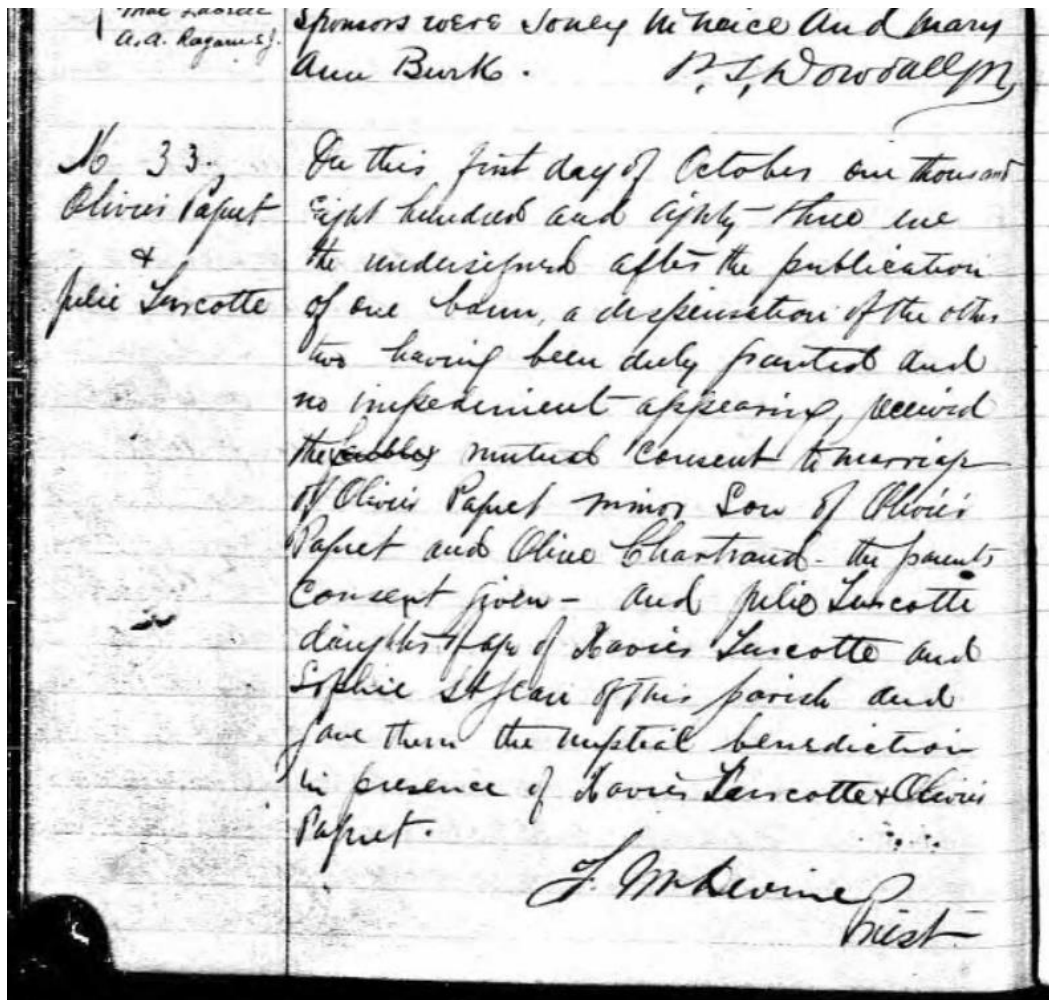 A. A. Ragaru s.j.
Sponsors were
and Mary
Ann Burk.
No 33.
Olivier Paquet
&
Julie Turcotte
On this first day of October one thousand
Eight hundred and eighty-three we
the undersigned after the publication
of one bann, a dispensation of the other
two having been duly granted and
no impediment appearing, received
the mutual consent to marriage
of Olivier Paquet minor Son of Olivier
Paquet and Olive Chartrand - the parents
consent given - and Julie Turcotte
daughter of age of Xavier Turcotte and
Sophie St Jean of this parish and
gave them the nuptial benediction
in presence of Xavier Turcotte & Olivier
Paquet.
F. McDevine
Priest